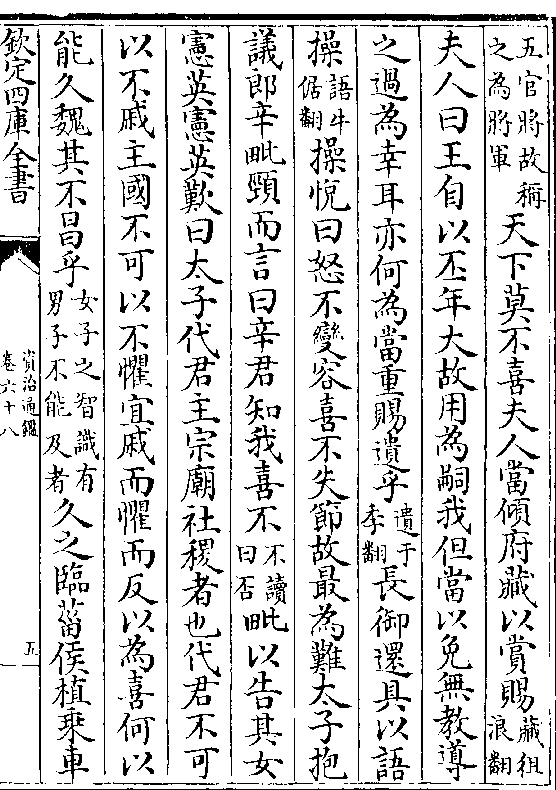 五官將故稱之為將軍天下莫不喜夫人當傾府藏以賞賜藏徂浪翻
夫人曰王自以丕年大故用為嗣我但當以免無教導
之過為幸耳亦何為當重賜遺乎遺于季翻長御還具以語
操語牛倨翻操悅曰怒不變容喜不失節故最為難太子抱
議郎辛毗頸而言曰辛君知我喜不不讀曰否毗以告其女
憲英憲英歎曰太子代君主宗廟社稷者也代君不可
以不戚主國不可以不懼宜戚而懼而反以為喜何以
能久魏其不昌乎女子之智識有男子不能及者久之臨菑侯植乘車
欽定四庫全書
資治通鑑
卷六十八
五